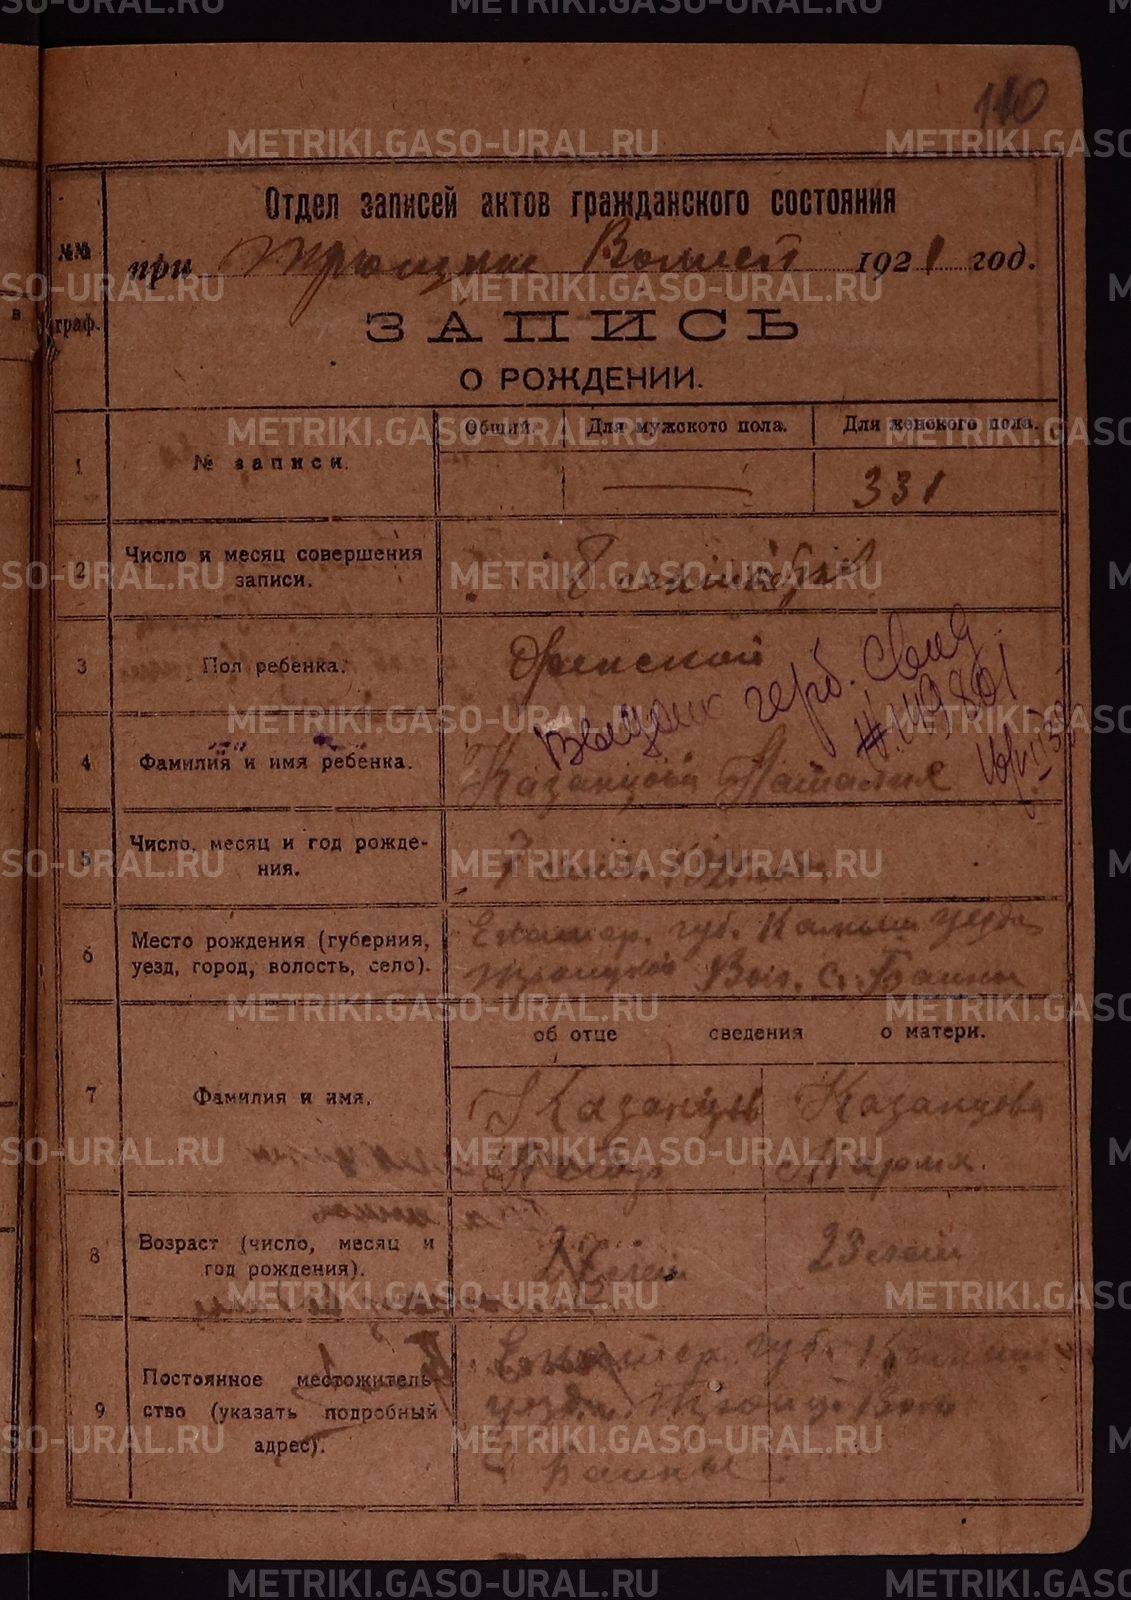 110
Отдел записей актов гражданского состояния
№№ граф.
при Троицком Волисп 1921 год.
ЗАПИСЬ
О РОЖДЕНИИ.
Общий. Для мужского пола. Для женского пола.
1 № записи. 331
2 Число и месяц совершения записи. 8 сентября
3 Пол ребенка. Женской
Выдан герб. Свид.
№ 49801
4 Фамилия и имя ребенка. Казанцова Наталия
5 Число, месяц и год рождения. 7 1921
6 Место рождения (губерния, уезд, город, волость, село). Екатер. губ. Камыш уезда
Троицкой Вол. с. Баины
об отце сведения о матери.
7 Фамилия и имя. Казанцов Казанцова
Мария.
8 Возраст (число, месяц и год рождения). лет 23 лет
9 Постоянное местожительство (указать подробный адрес). Екатер. губ. Камыш
уезда Троиц. Вол
с Баины
METRIKI.GASO-URAL.RU